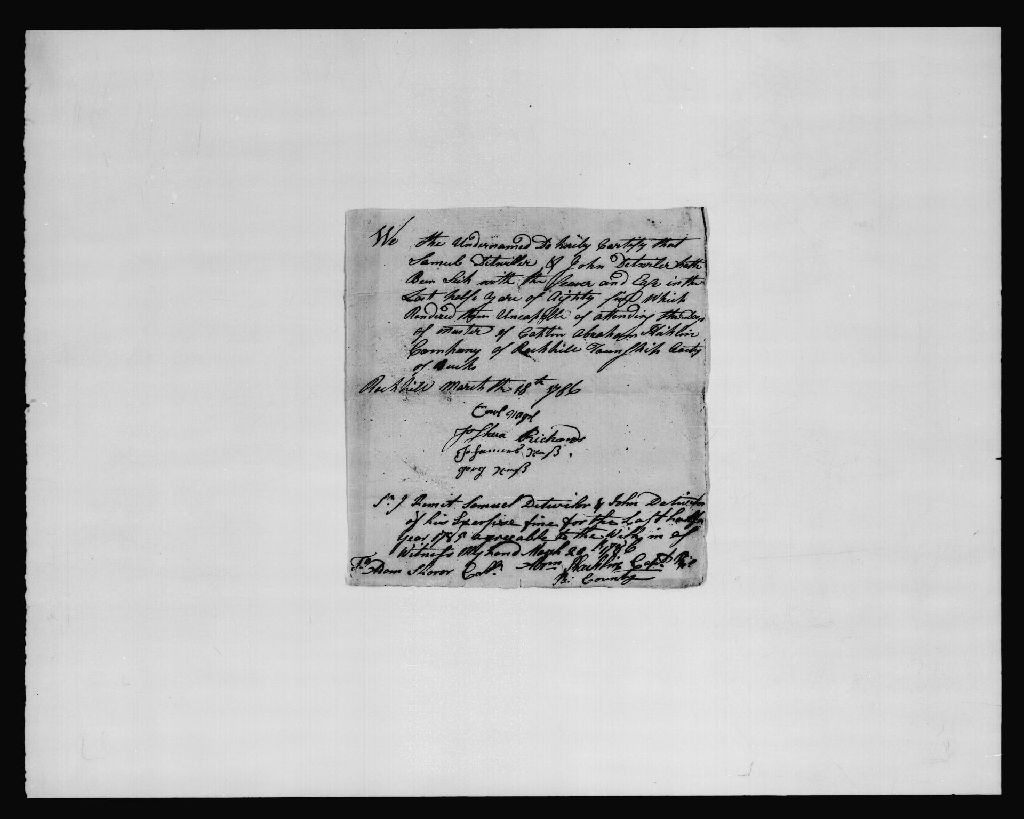 We the Undernamed Do heirby Certify that
Samuel Detwiller & John Detwiler hath
Ben Sick with the feaver and in the
Last helf Yare of Eighty five Which
Rendered them Uncapable of attending the Days
of Muster of Captin Abraham
Company of Rockhill Township County
of Bucks
Rockhill March the 18th 1786
Carl Nagel
Joshua Richards
Johannes
Sr. I Remit Samuel Detwiler & John Detwiler
of his Exersise fine for the Last half
Year 1785 agreeable to the in
Witness My hand March 20 1786
To Adam Shearer Colt. Abrm Capt.
B. County